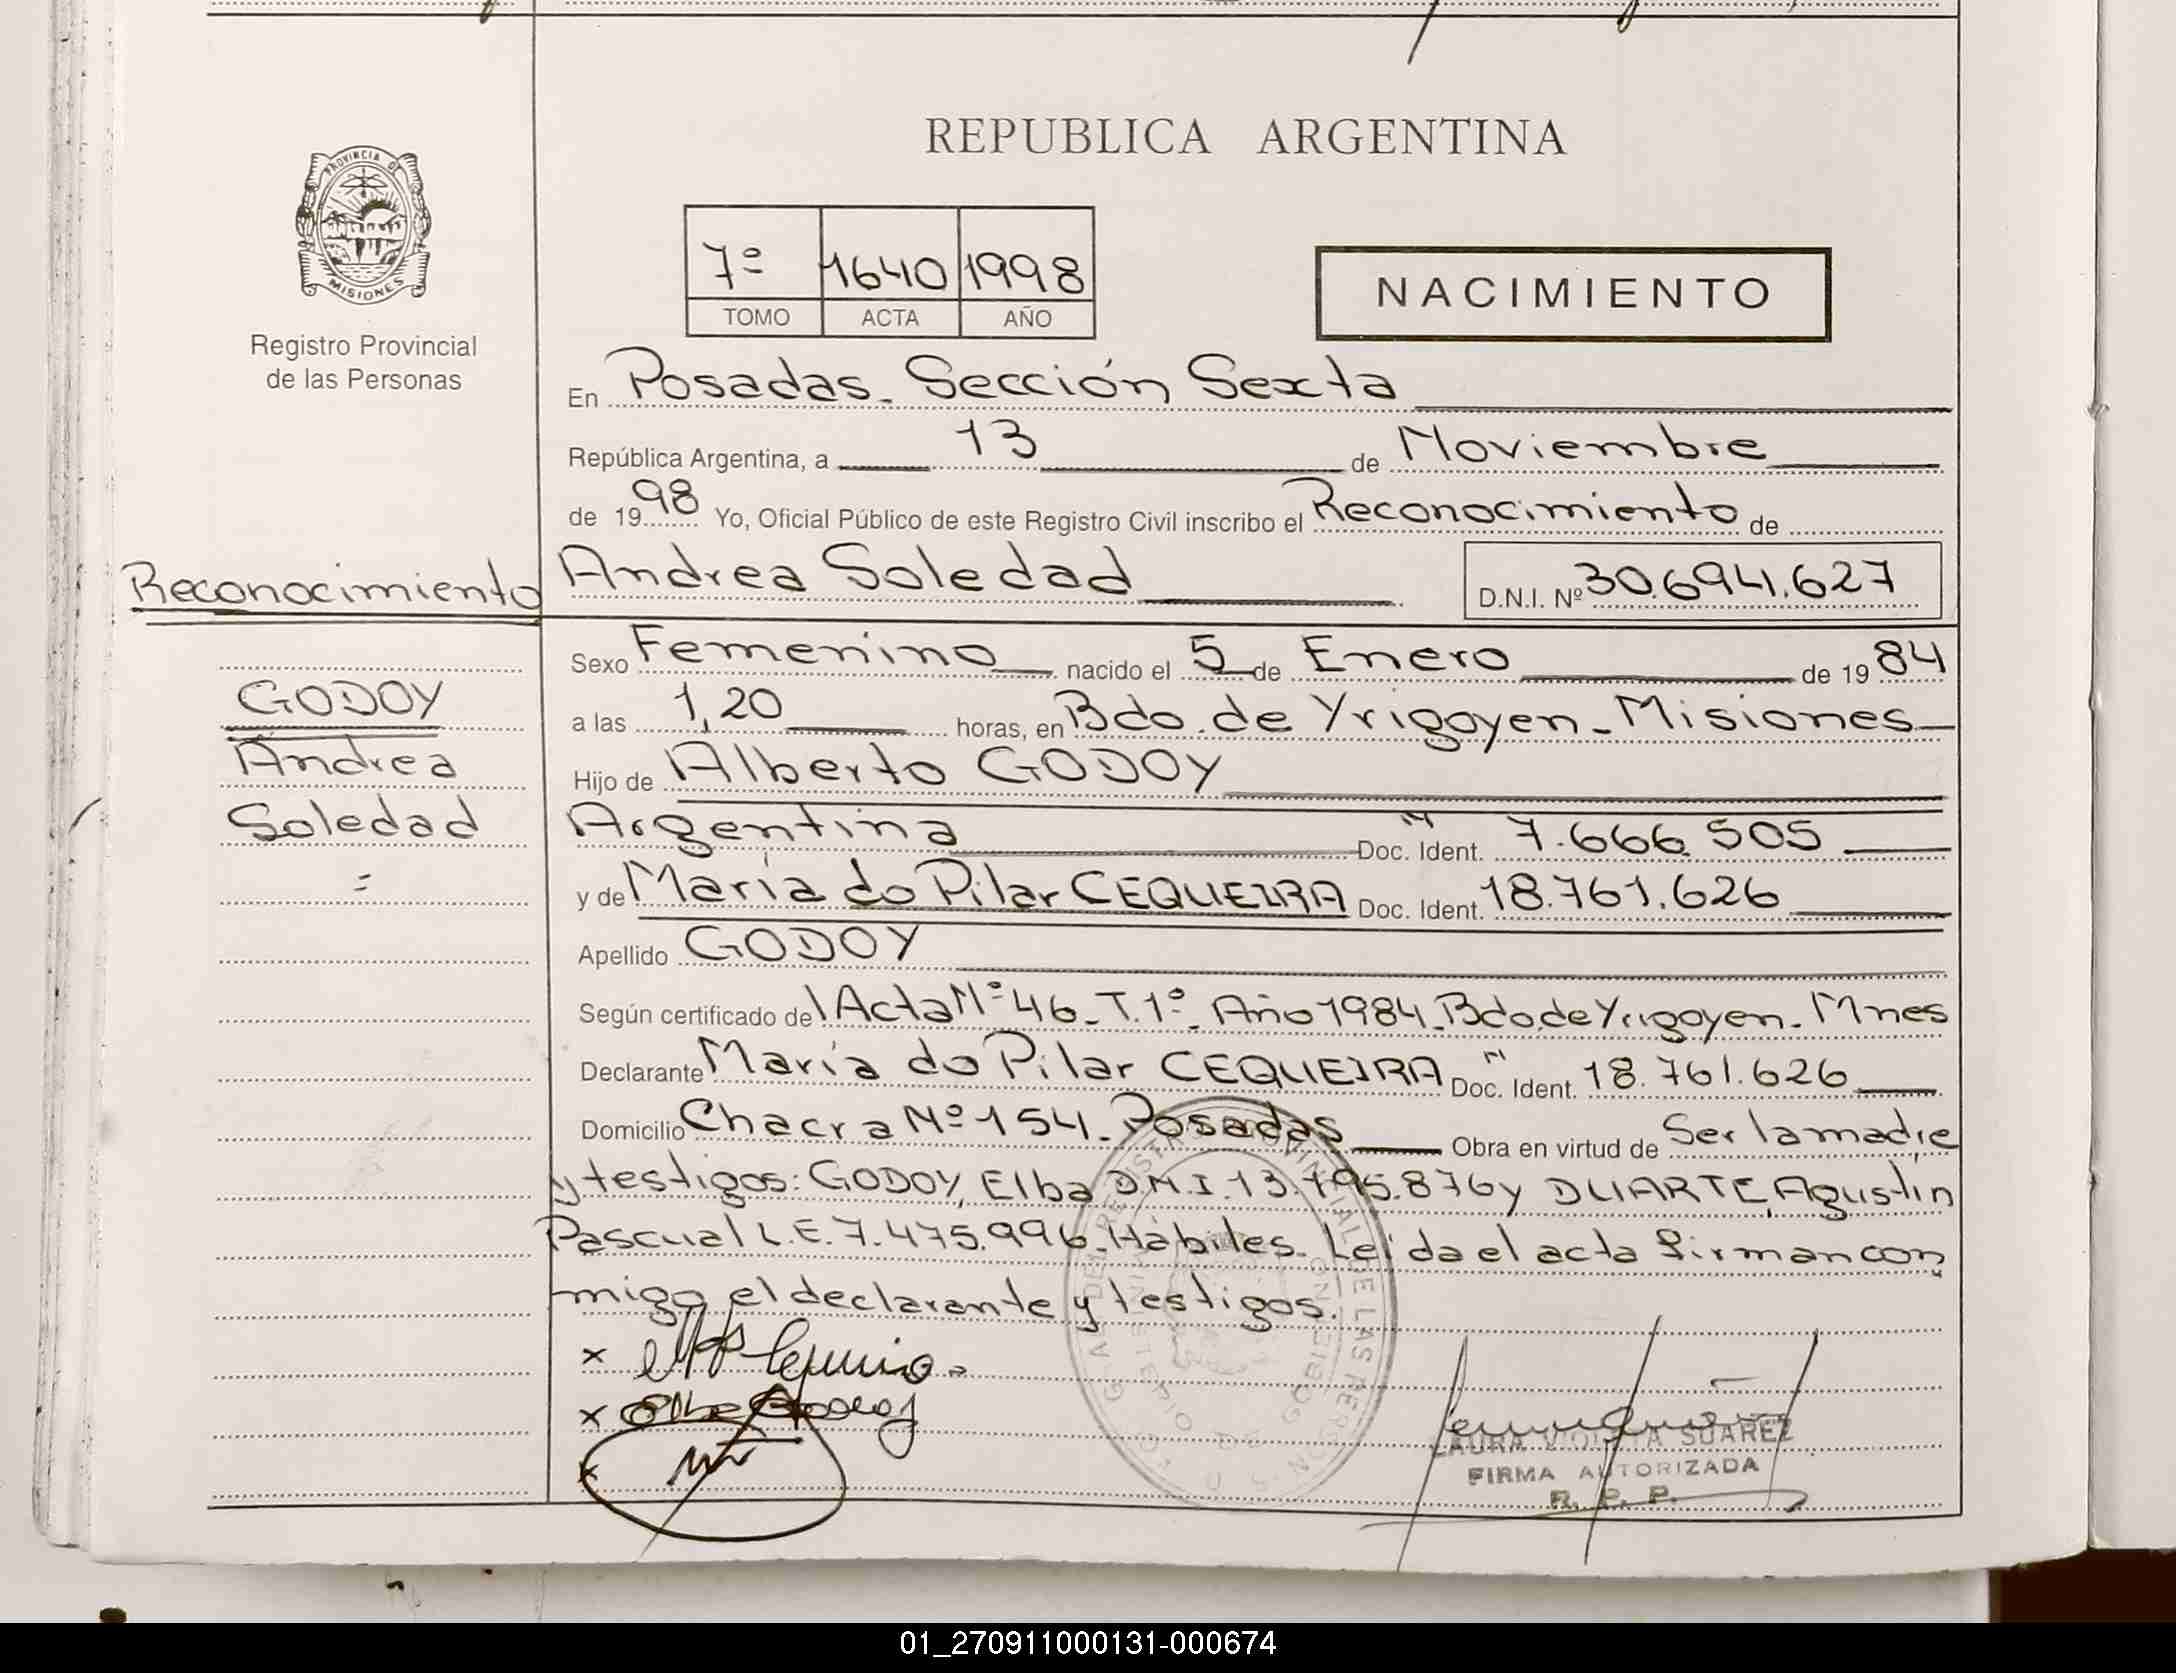 REPUBLICA ARGENTINA
PROVINCIA DE
MISIONES
Registro Provincial
de las Personas
7º 1640 1998
TOMO ACTA AÑO
NACIMIENTO
En Posadas. Sección Sexta
República Argentina, a 13 de Noviembre
de 1998 Yo, Oficial Público de este Registro Civil inscribo el Reconocimiento de
Reconocimiento
Andrea Soledad D.N.I. Nº 30.694.627
GODOY
Andrea
Soledad
=
Sexo Femenino nacido el 5 de Enero de 1984
a las 1,20 horas, en Bdo. de Yrigoyen - Misiones
Hijo de Alberto GODOY
Argentina M Doc. Ident. 7.666.505
y de María do Pilar CEQUEIRA Doc. Ident. 18.761.626
Apellido GODOY
Según certificado de Acta Nº 46 - T. 1º - Año 1984. Bdo de Yrigoyen - Mnes
Declarante María do Pilar CEQUEIRA M Doc. Ident. 18.761.626
Domicilio Chacra Nº 154 - Posadas Obra en virtud de Ser la madre
y testigos: GODOY, Elba D.N.I. 13.195.876 y DUARTE, Agustín
Pascual L.E. 7.475.996. Hábiles. Leída el acta firman con
migo el declarante y testigos.
x
x Elba Godoy
x
LAURA VIOLETA SUAREZ
FIRMA AUTORIZADA
R. P. P.
01_270911000131-000674